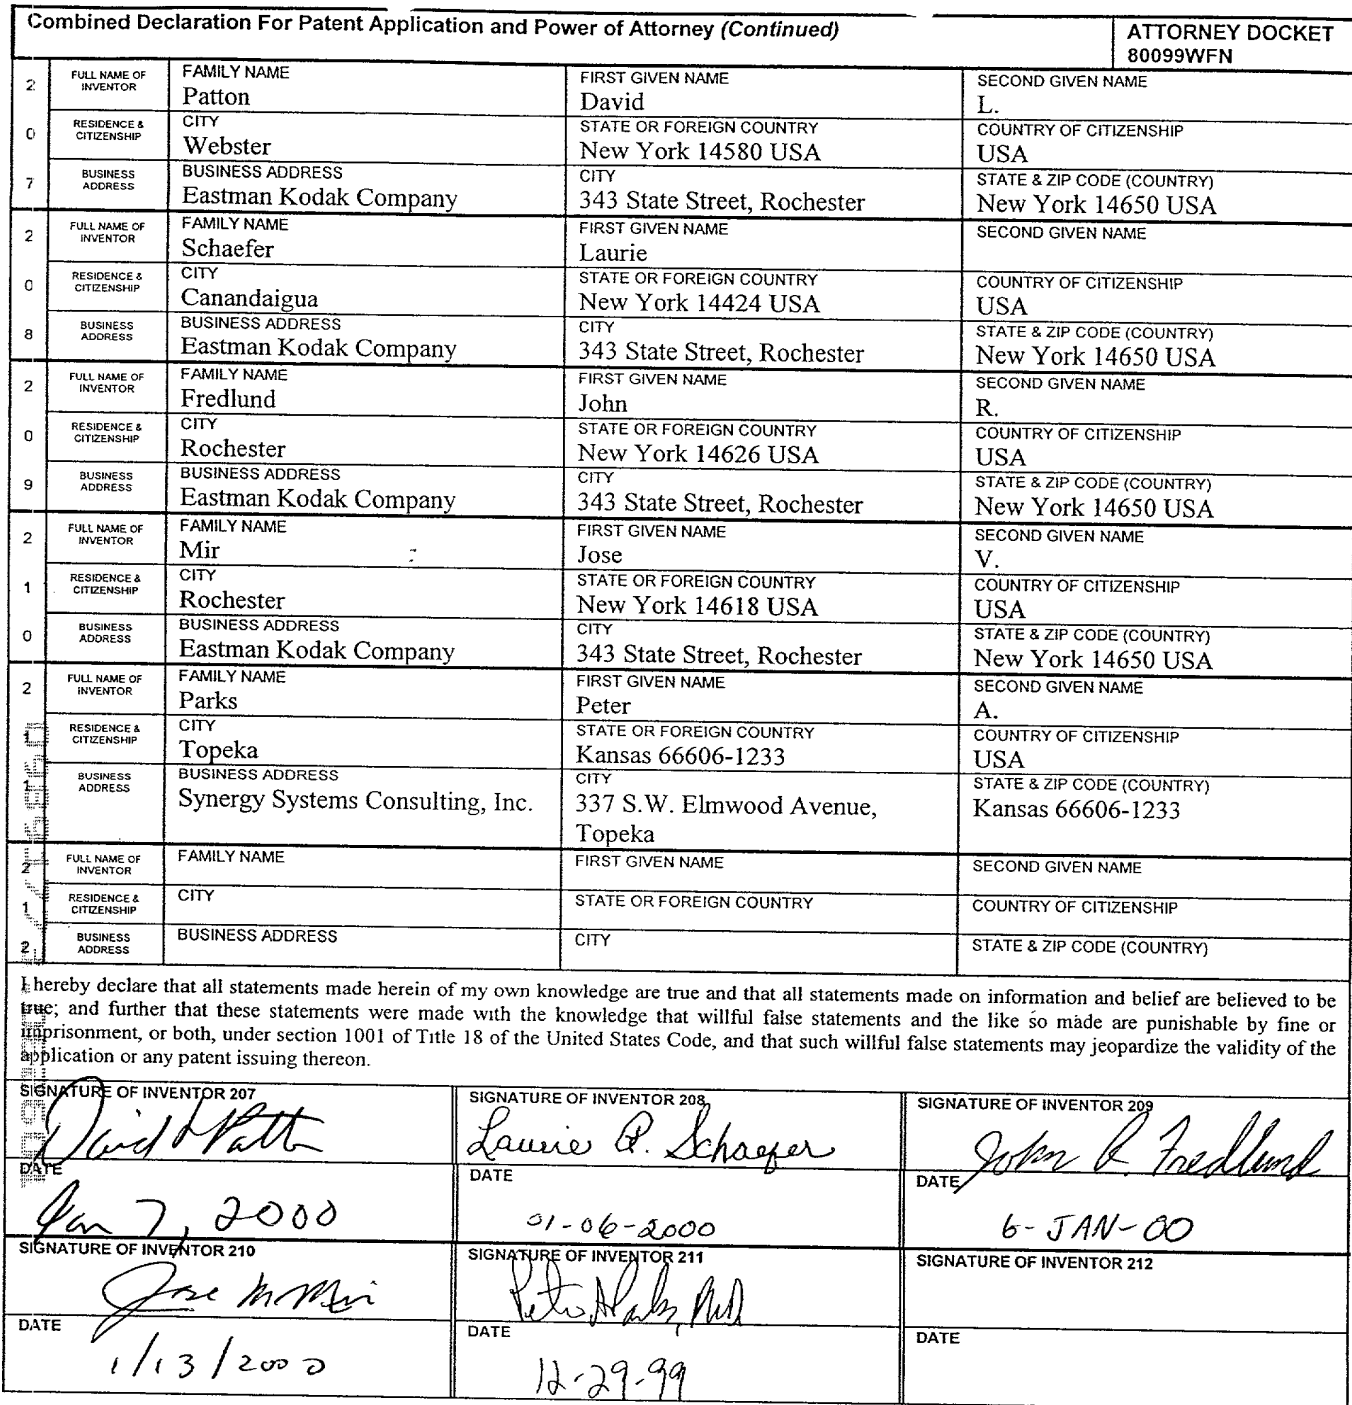 Combined Declaration For Patent Application and Power of Attorney (Continued)
ATTORNEY DOCKET
80099WFN
2 0 7
FULL NAME OF INVENTOR
FAMILY NAME
Patton
FIRST GIVEN NAME
David
SECOND GIVEN NAME
L.
RESIDENCE & CITIZENSHIP
CITY
Webster
STATE OR FOREIGN COUNTRY
New York 14580 USA
COUNTRY OF CITIZENSHIP
USA
BUSINESS ADDRESS
BUSINESS ADDRESS
Eastman Kodak Company
CITY
343 State Street, Rochester
STATE & ZIP CODE (COUNTRY)
New York 14650 USA
2 0 8
FULL NAME OF INVENTOR
FAMILY NAME
Schaefer
FIRST GIVEN NAME
Laurie
SECOND GIVEN NAME
RESIDENCE & CITIZENSHIP
CITY
Canandaigua
STATE OR FOREIGN COUNTRY
New York 14424 USA
COUNTRY OF CITIZENSHIP
USA
BUSINESS ADDRESS
BUSINESS ADDRESS
Eastman Kodak Company
CITY
343 State Street, Rochester
STATE & ZIP CODE (COUNTRY)
New York 14650 USA
2 0 9
FULL NAME OF INVENTOR
FAMILY NAME
Fredlund
FIRST GIVEN NAME
John
SECOND GIVEN NAME
R.
RESIDENCE & CITIZENSHIP
CITY
Rochester
STATE OR FOREIGN COUNTRY
New York 14626 USA
COUNTRY OF CITIZENSHIP
USA
BUSINESS ADDRESS
BUSINESS ADDRESS
Eastman Kodak Company
CITY
343 State Street, Rochester
STATE & ZIP CODE (COUNTRY)
New York 14650 USA
2 1 0
FULL NAME OF INVENTOR
FAMILY NAME
Mir
FIRST GIVEN NAME
Jose
SECOND GIVEN NAME
V.
RESIDENCE & CITIZENSHIP
CITY
Rochester
STATE OR FOREIGN COUNTRY
New York 14618 USA
COUNTRY OF CITIZENSHIP
USA
BUSINESS ADDRESS
BUSINESS ADDRESS
Eastman Kodak Company
CITY
343 State Street, Rochester
STATE & ZIP CODE (COUNTRY)
New York 14650 USA
2 1 1
FULL NAME OF INVENTOR
FAMILY NAME
Parks
FIRST GIVEN NAME
Peter
SECOND GIVEN NAME
A.
RESIDENCE & CITIZENSHIP
CITY
Topeka
STATE OR FOREIGN COUNTRY
Kansas 66606-1233
COUNTRY OF CITIZENSHIP
USA
BUSINESS ADDRESS
BUSINESS ADDRESS
Synergy Systems Consulting, Inc.
CITY
337 S.W. Elmwood Avenue,
Topeka
STATE & ZIP CODE (COUNTRY)
Kansas 66606-1233
2 1 2
FULL NAME OF INVENTOR
FAMILY NAME
FIRST GIVEN NAME
SECOND GIVEN NAME
RESIDENCE & CITIZENSHIP
CITY
STATE OR FOREIGN COUNTRY
COUNTRY OF CITIZENSHIP
BUSINESS ADDRESS
BUSINESS ADDRESS
CITY
STATE & ZIP CODE (COUNTRY)
I hereby declare that all statements made herein of my own knowledge are true and that all statements made on information and belief are believed to be
true; and further that these statements were made with the knowledge that willful false statements and the like so made are punishable by fine or
imprisonment, or both, under section 1001 of Title 18 of the United States Code, and that such willful false statements may jeopardize the validity of the
application or any patent issuing thereon.
SIGNATURE OF INVENTOR 207
David L Patton
SIGNATURE OF INVENTOR 208
Laurie P. Schaefer
SIGNATURE OF INVENTOR 209
John R. Fredlund
DATE
Jan 7, 2000
DATE
01-06-2000
DATE
6-JAN-00
SIGNATURE OF INVENTOR 210
Jose M Mir
SIGNATURE OF INVENTOR 211
Peter A Parks, PhD
SIGNATURE OF INVENTOR 212
DATE
1/13/2000
DATE
12-29-99
DATE